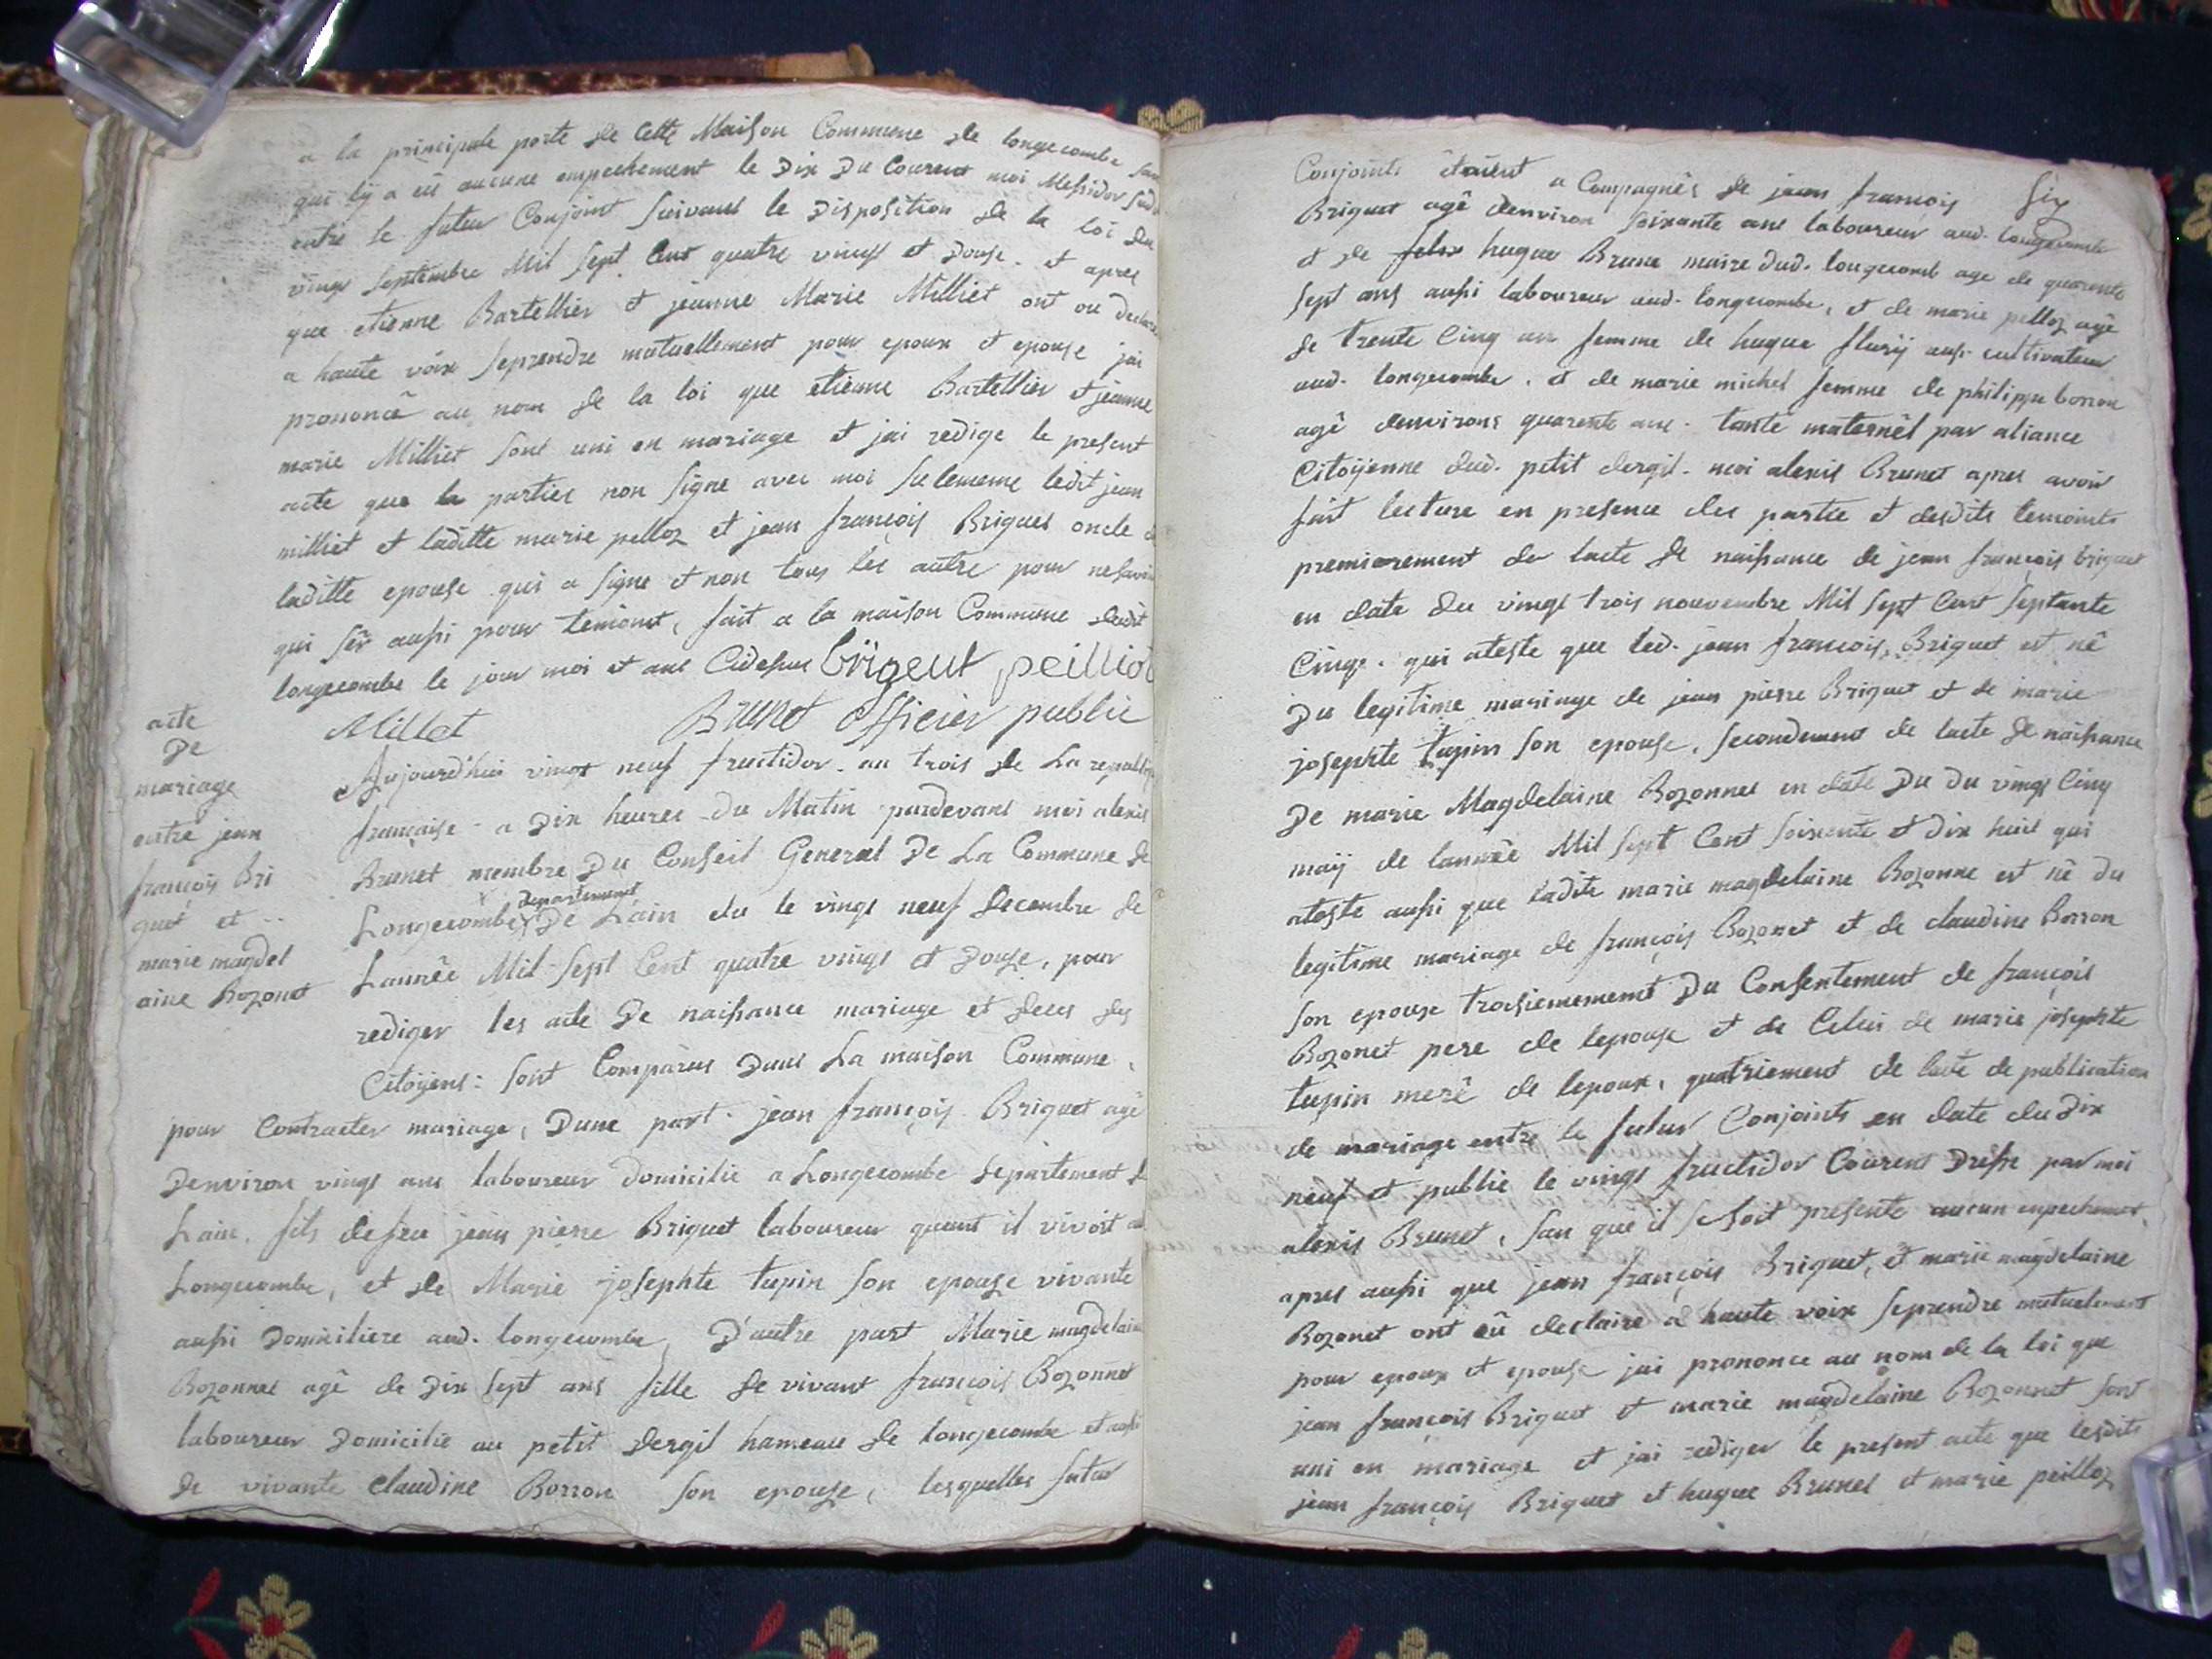 a la principale porte de Cette Maison Commune de longecombe sans
qui ly a eü aucune empechement le Dix Du Courent moi Messidor
entre le futeur Conjoint suivans le Disposition de la loi du
vingt septembre Mil sept Cent quatre vingt et Douse. et apres
que etienne Bartellier et jeanne Marie Milliet ont ou declare
a haute voix seprendre mutuellement pour epoux et epouse jai
prononcê au nom de la loi que etienne Bartellier et jeanne
marie Milliet sont uni en mariage et jai redige le present
acte que la parties non signe avec moi seulememe ledit jean
milliet et laditte marie pelloz et jean françois Briquet oncle de
laditte epouse qui a signe et non tous les autre pour ne savoir
qui ser aussi pour temoint, fait a la maison Commune dudit
longecombe le jour moi et ans Cidesus brigeut peilliod
Millet Brunet officier public
acte
De
mariage
entre jean
françois Bri
quet et ..
marie magdel
aine Bozonet
Aujourd'hui vingt neuf fructidor. an trois de La republique
française - a Dix heures Du Matin pardevans moi alexis
Brunet membre Du Conseil General De La Commune de
departement
Longecombe De Lain elu le vingt neuf decembre de
Lannêe Mil Sept Cent quatre vingt et Douse, pour
rediger les acte De naissance mariage et deces des
Citoÿens: sont Comparus Dans La maison Commune,
pour Contracter mariage, Dune part. jean françois Briquet agê
Denviron vingt ans laboureur Domicilie a Longecombe departement de
Lain. fils de feu jean pierre Briquet laboureur quant il vivoit au
Longecombe, et de Marie josephte tupin son epouse vivante
aussi Domiciliere aud. longecombe, D'autre part Marie magdelaine
Bozonnet agê de Dix sept ans fille de vivant françois Bozonnet
laboureur Domicilie au petit Dergil hameau de longecombe et aussi
de vivante Claudine Borron son epouse, lesquelles futur
Conjoints êtoient a Compagnês de jean françois six
Briquet agê denviron soixante ans laboureur aud. longecombe
et de felix hugue Brune maire dud. longecomb age de quarente
sept ans aussi laboureur aud. longecombe, et de marie pelloz agê
de trente Cinq ans femme de hugue fleurÿ aussi cultivateur
aud. longecombe. et de marie michel femme de philippe borron
agê denvirons quarente ans. tante maternêl par aliance
Citoÿenne dud. petit dergil. moi alexis Brunet apres avoir
fait lecture en presence des partie et desdits temoints
premierement de lacte de naissance de jean françois briquet
en date du vingt trois nouvembre Mil sept Cent septante
Cinqe. qui ateste que led. jean françois Briquet est nê
Du legitime mariage de jean pierre Briquet et de marie
josephte tupin son epouse. secondement de lacte de naissance
De marie Magdelaine Bozonnet en date Du du vingt Cinq
maÿ de lannêe Mil sept Cent soixente et dix huit qui
ateste aussi que ladite marie magdelaine Bozonne est nê du
legitime mariage de françois Bozonet et de claudine Borron
son epouse troisiemement Du Consentement de françois
Bozonet pere de lepouse et de Celui de marie josephte
tupin merê de lepoux, quatriement de lacte de publication
de mariage entre le futur Conjoints en date du Dix
neuf et publie le vingt fructidor Courent Dresse par moi
alexis Brunet, san que il se soit presente aucun empechement.
apres aussi que jean françois Briquet, et marie magdelaine
Bozonet ont eû declaire a haute voix seprendre mutuelement
pour epoux et epouse jai prononce au nom de la loi que
jean françois Briquet et marie magdelaine Bozonnet sont
uni en mariage et jai rediger le present acte que lesdits
jean françois Briquet et hugue Brunet et marie peilloz